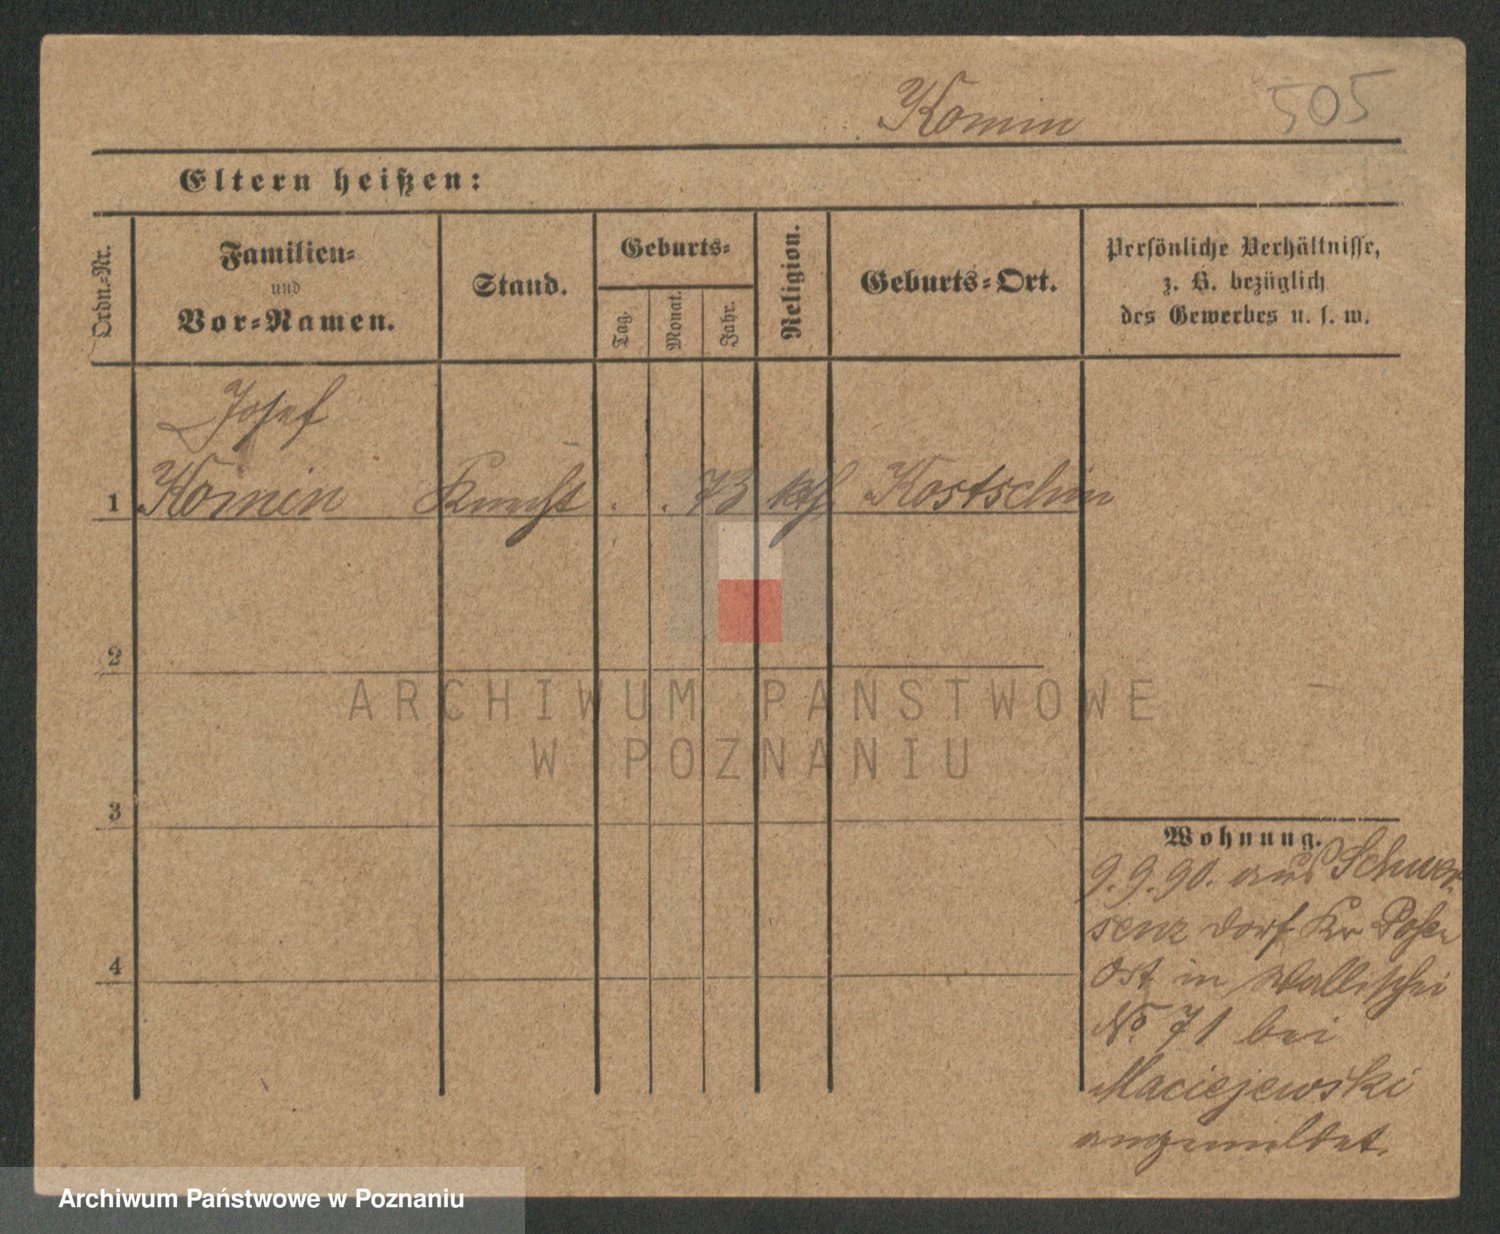 Komin 505
Eltern heißen:
Ordn.-Nr.
Familien-
und
Vor-Namen.
Stand.
Geburts-
Tag.
Monat.
Jahr.
Religion.
Geburts-Ort.
Persönliche Verhältnisse,
z. B. bezüglich
des Gewerbes u. s. w.
Josef
1 Komin Knecht . . 73 kth Kostschin
2
3
4
Wohnung.
9.9.90. aus Schwer
senz Dorf Kr Posen
Ost in Wallischei
No 71 bei
Maciejewski
angemeldet.
ARCHIWUM PAŃSTWOWE
W POZNANIU
Archiwum Państwowe w Poznaniu